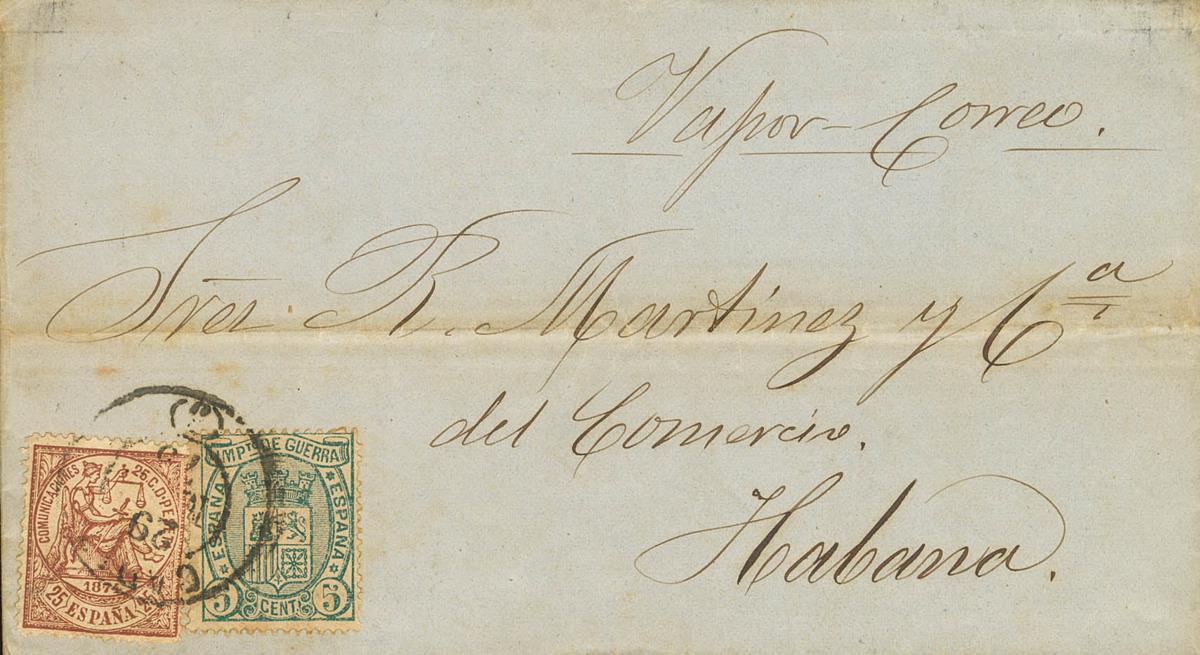 Vapor-Correo.
Sres R. Martinez y Cª
del Comercio.
Habana.
COMUNICACIONES 25 C. D. PE
1874
25 ESPAÑA 25
IMPTO DE GUERRA
ESPAÑA ESPAÑA
5 CENT. 5
29